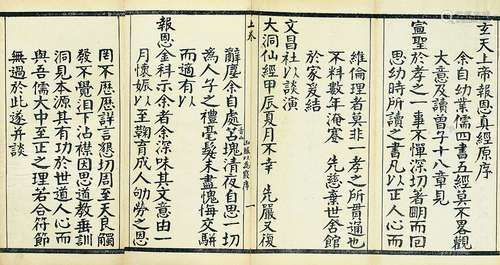 玄天上帝報恩真經原序
余自幼業儒四書五經莫不畧觀
大意及讀曾子十八章見
宣聖於孝之一事不憚深切著明而回
思幼時所讀之書凡以正人心而
維倫理者莫非一孝之所貫通也
不料數年淹蹇先慈棄世舍館
於家爰結
文昌社以談演
大洞仙經甲辰夏月不幸先嚴又復
上本
一
辭塵余自處苫塊清夜自思一切
為人子之禮毫髮未盡愧悔交騈
而適有以
報恩金科示余者余深味其文意由一
月懷娠以至鞠育成人劬勞之恩
罔不歷歷詳言懇切周至天良觸
發不覺泪下沾襟因思道教垂訓
洞見本源其有功於世道人心而
與吾儒大中至正之理若合符節
無過於此遂并談